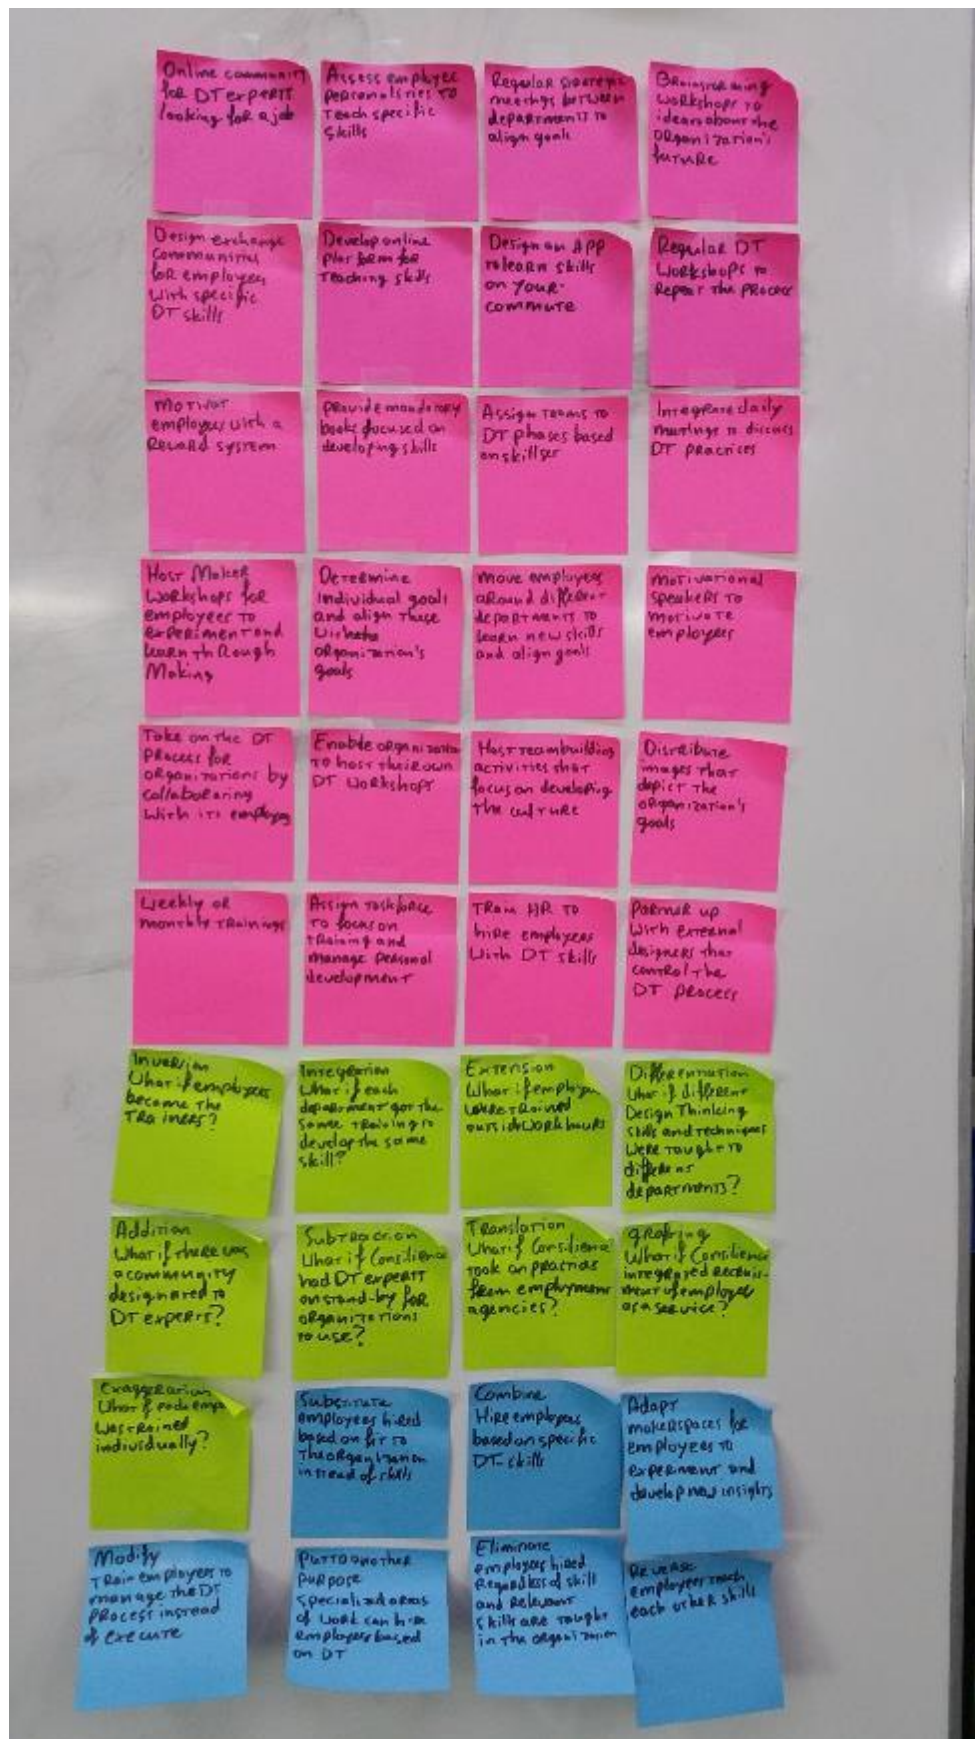 Online communit
for DT experts
looking for a job
Assess employee
personalities to
teach specific
skills
Regular strategic
meetings between
departments to
align goals
Brainstorming
workshops to
ideas about the
organization's
future
Design exchange
communities
for employees
with specific
DT skills
Develop online
platform for
teaching skills
Design an App
to learn skills
on your
commute
Regular DT
workshops to
repeat the process
Motivat
employees with a
reward system
provide mandatory
books focused on
developing skills
Assign teams to
DT phases based
on skillset
Integrate daily
meetings to discuss
DT practices
Host Maker
workshops for
employees to
experiment and
learn through
Making
Determine
individual goals
and align these
organization's
goals
move employees
around different
departments to
learn new skills
and align goals
motivational
speakers to
motivate
employees
Take on the DT
process for
organizations by
collaborating
with its employes
Enable organization
to host their own
DT workshops
Host teambuilding
activities that
focus on developing
the culture
Distribute
images that
depict the
organization's
goals
Weekly or
monthly trainings
Assign taskforce
to focus on
training and
manage personal
development
Train HR to
hire employees
with DT skills
Partner up
with external
designers that
control the
DT process
Inversion
What if employees
become the
trainers?
Integration
What if each
department got the
same training to
develop the same
skill?
Extension
What if employees
were trained
outside work hours
Differentiation
What if different
Design Thinking
skills and techniques
were taught to
different
departments?
Addition
What if there was
a community
designated to
DT experts?
Subtraction
What if Consilience
had DT experts
on stand-by for
organizations
to use?
Translation
What if Consilience
took on practices
from employment
agencies?
grafting
What if Consilience
integrated recruit-
ment of employees
as a service?
Exaggeration
What if each emp
was trained
individually?
Substitute
employees hired
based on fit to
the organization
instead of skills
Combine
Hire employees
based on specific
DT-skills
Adapt
makerspaces for
employees to
experiment and
develop new insights
Modify
Train employees to
manage the DT
process instead
of execute
Put to another
purpose
specialized areas
of work can hire
employees based
on DT
Eliminate
employees hired
regardless of skill
and relevant
skills are taught
in the organization
Reverse
employees teach
each other skills